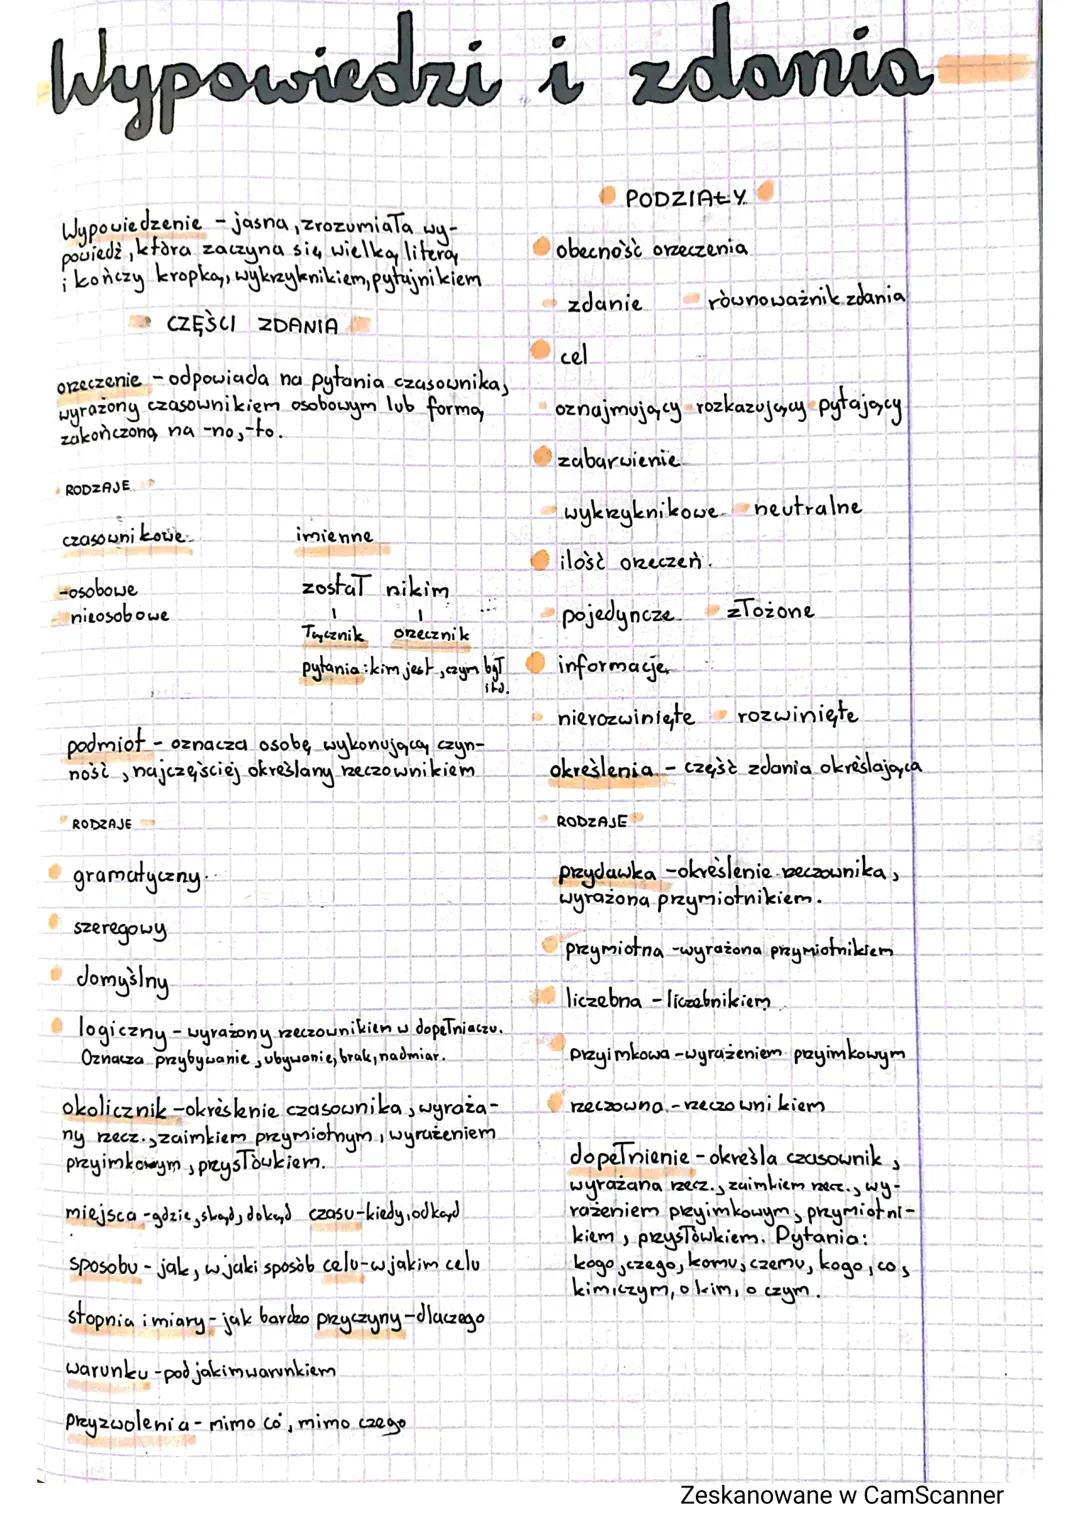 Wypowiedzi i zdania
Wypowiedzenie - jasna, zrozumiała wy-
powiedź, która zaczyna się wielką literą
i kończy kropką, wykrzyknikiem, pytajnikiem
CZĘŚCI ZDANIA
orzeczenie - odpowiada na pytania czasownika,
wyrażony czasownikiem osobowym lub formą
zakończoną na -no, -to.
RODZAJE
czasownikowe
imienne
-osobowe
-nieosobowe
został nikim
łącznik orzecznik
pytania: kim jest, czym był
itd.
podmiot - oznacza osobę wykonującą czyn-
ność, najczęściej określany rzeczownikiem
RODZAJE
gramatyczny
szeregowy
domyślny
logiczny - wyrażony rzeczownikiem w dopełniaczu.
Oznacza przybywanie, ubywanie, brak, nadmiar.
okolicznik - określenie czasownika, wyraża-
ny rzecz., zaimkiem przymiotnym, wyrażeniem
przyimkowym, przysłówkiem.
miejsca - gdzie, skąd, dokąd czasu - kiedy, odkąd
sposobu - jak, w jaki sposób celu - w jakim celu
stopnia i miary - jak bardzo przyczyny - dlaczego
warunku - pod jakim warunkiem
przyzwolenia - mimo co, mimo czego
PODZIAŁY
obecność orzeczenia
zdanie równoważnik zdania
cel
oznajmujący rozkazujący pytający
zabarwienie
wykrzyknikowe neutralne
ilość orzeczeń.
pojedyncze złożone
informacje
nierozwinięte rozwinięte
określenia - część zdania określająca
RODZAJE
przydawka - określenie rzeczownika,
wyrażona przymiotnikiem.
przymiotna - wyrażona przymiotnikiem
liczebna - liczebnikiem
przyimkowa - wyrażeniem przyimkowym
rzeczowna - rzeczownikiem
dopełnienie - określa czasownik,
wyrażana rzecz., zaimkiem rzecz., wy-
rażeniem przyimkowym, przymiotni-
kiem, przysłówkiem. Pytania:
kogo, czego, komu, czemu, kogo, co,
kim, czym, o kim, o czym.
Zeskanowane w CamScanner